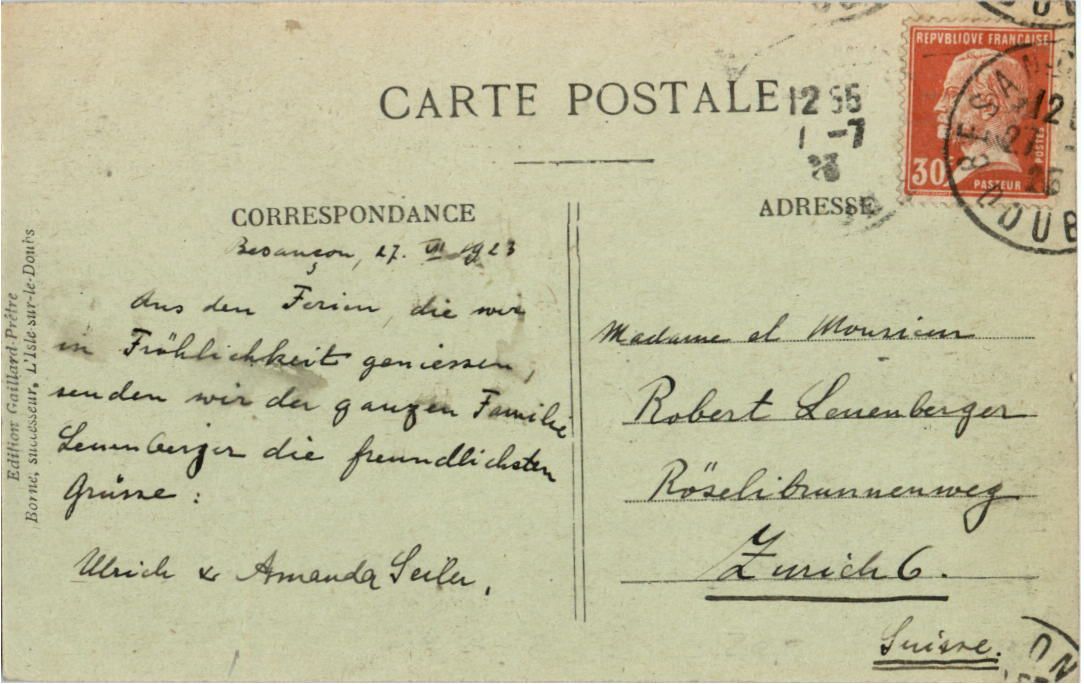 CARTE POSTALE
REPVBLIQVE FRANÇAISE
30c
POSTES
PASTEUR
BESAN
DOUB
12
27
26
12 55
1 -7
CORRESPONDANCE
ADRESSE
Besançon, 27. VII 1923
Aus den Ferien, die wir
in Fröhlichkeit geniessen,
senden wir der ganzen Familie
Leuenberger die freundlichsten
Grüsse:
Ulrich & Amanda Seiler,
Madame et Monsieur
Robert Leuenberger
Röselibrunnenweg
Zurich 6.
Suisse.
ON
Edition Gaillard-Prêtre
Borne, successeur, L'Isle-sur-le-Doubs